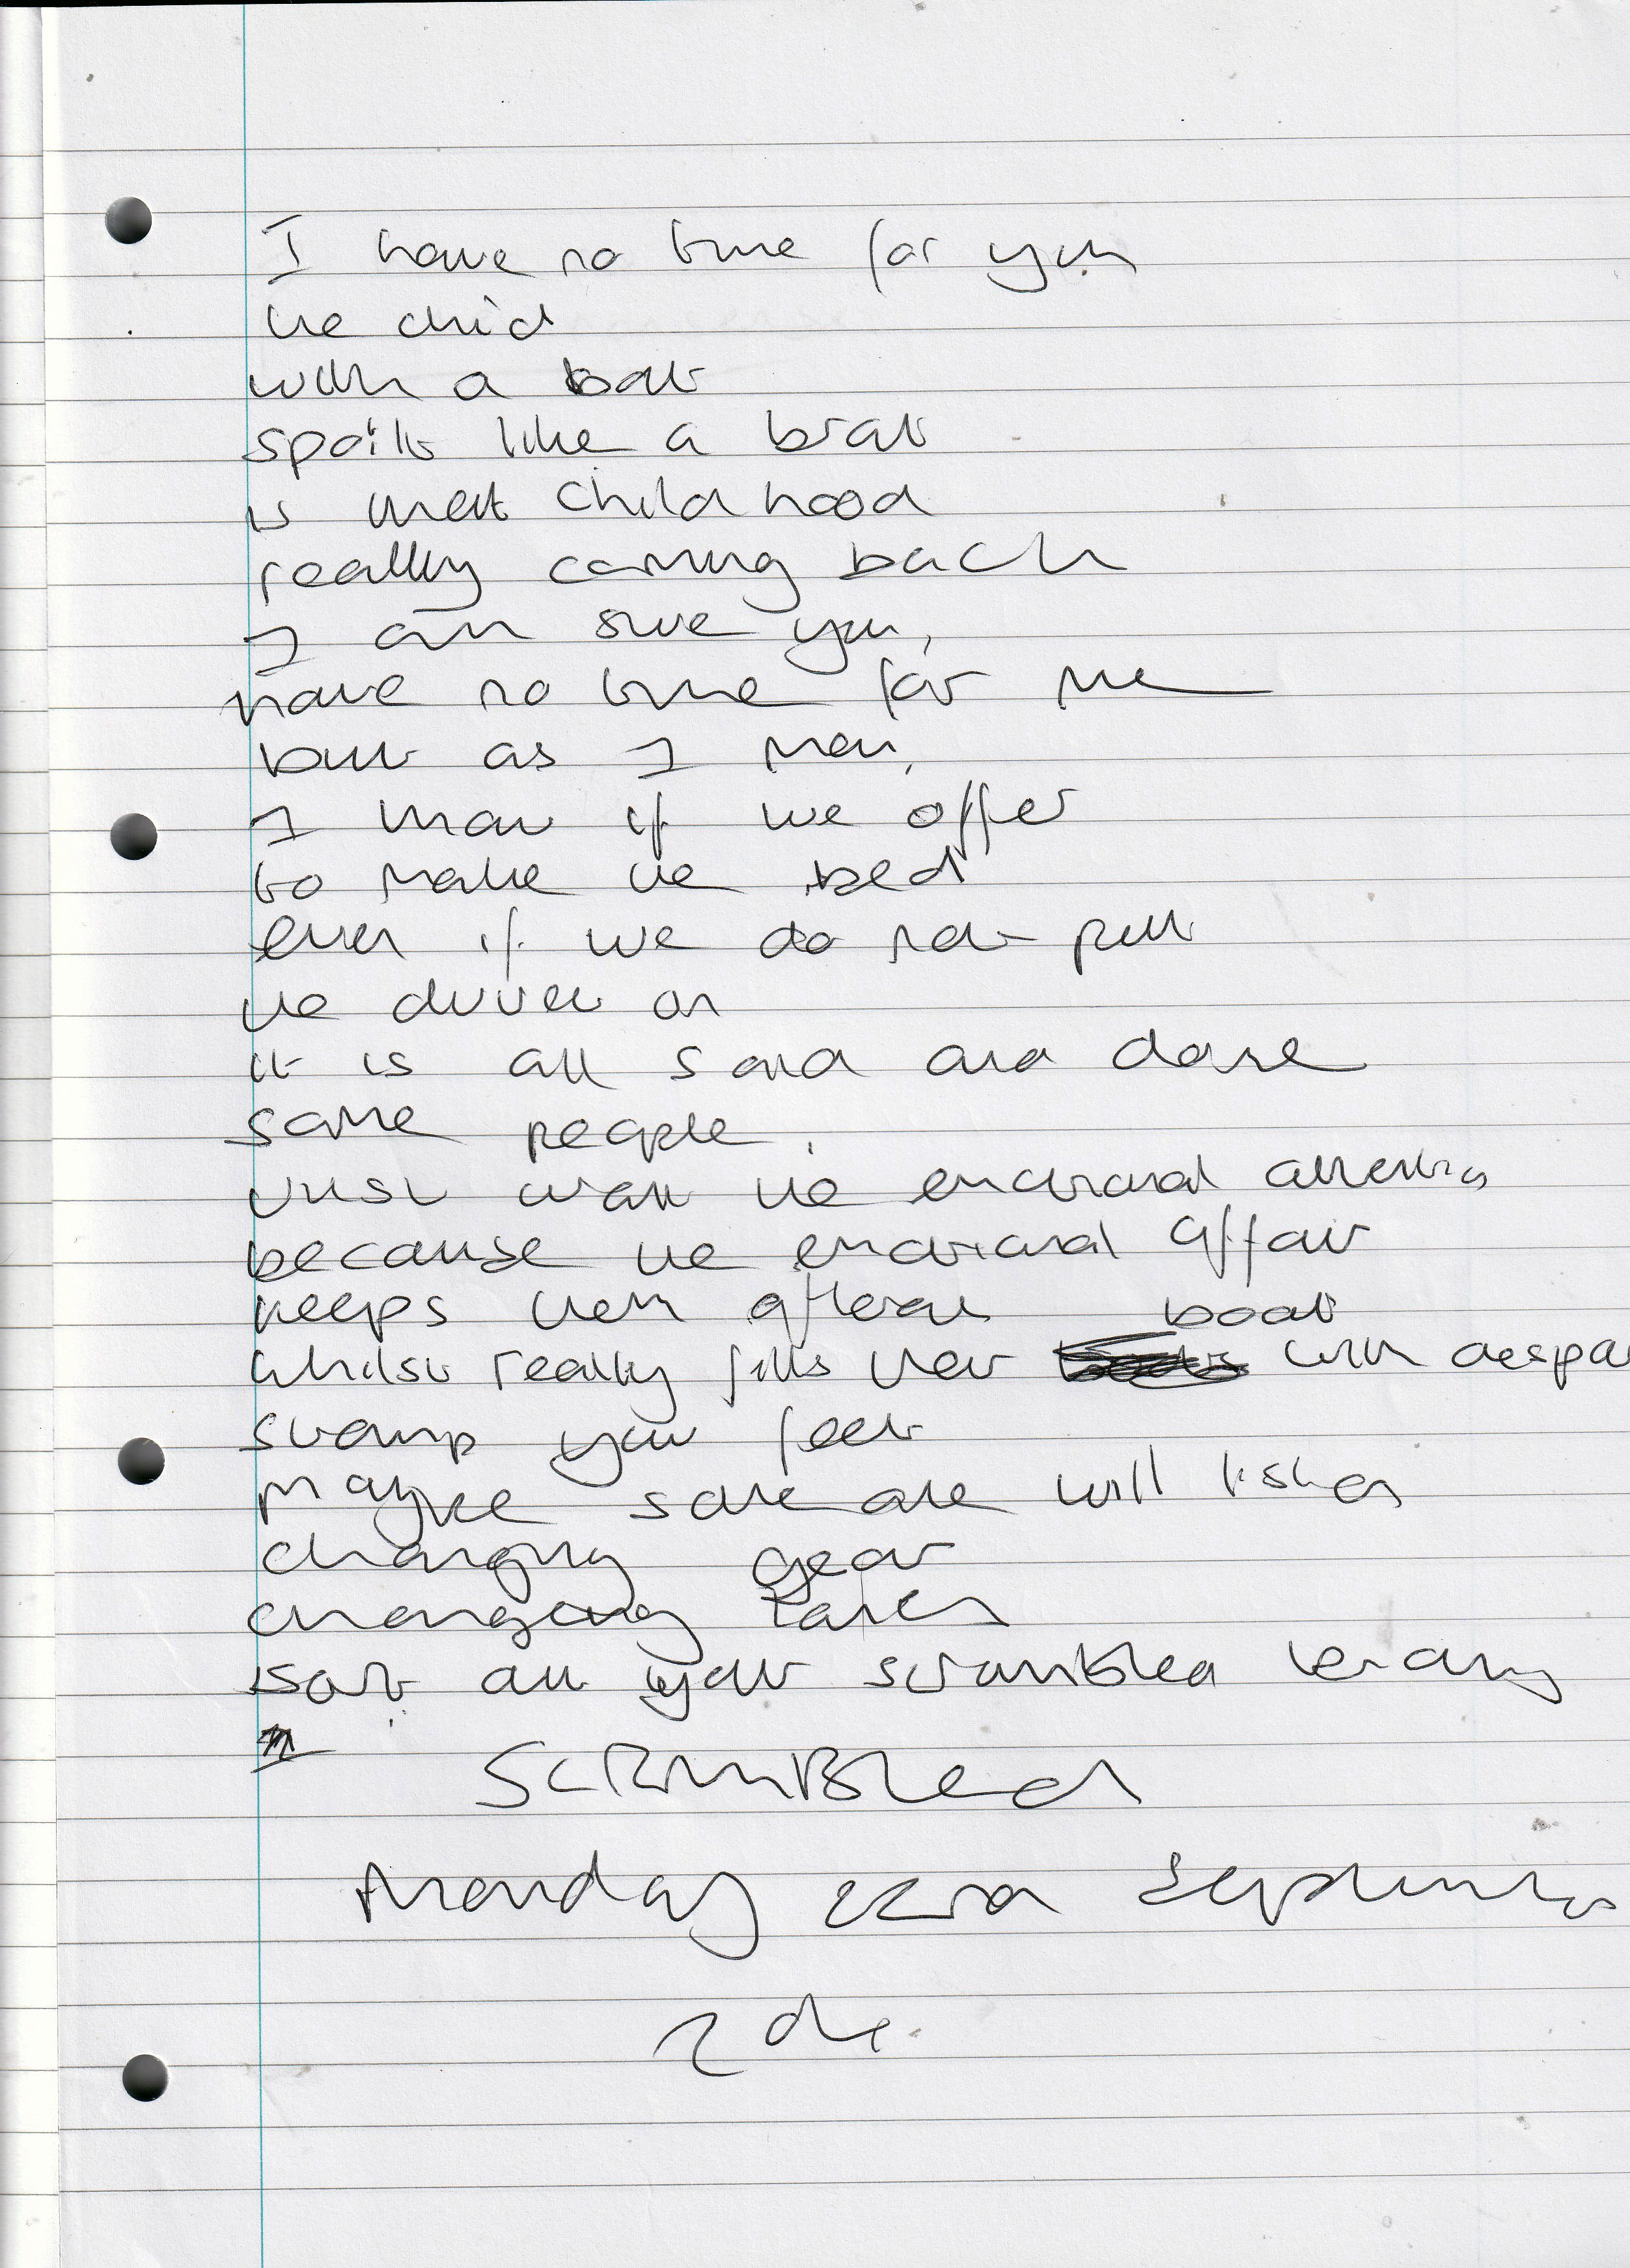 I have no time for you
the child
with a bat
spoilt like a brat
is that childhood
really coming back
I am sure you,
have no time for me
but as I
I know if we offer
to make the bed
even if we do not pull
the duvet on
it is all said and done
some people
just want the emotional attention
because the emotional affair
keeps them afloat boat
whilst really fills them with despa
stamp your feet
maybe some one will listen
changing gear
changing
sort all your scrambled
SCRAMBLed
Monday 22nd September